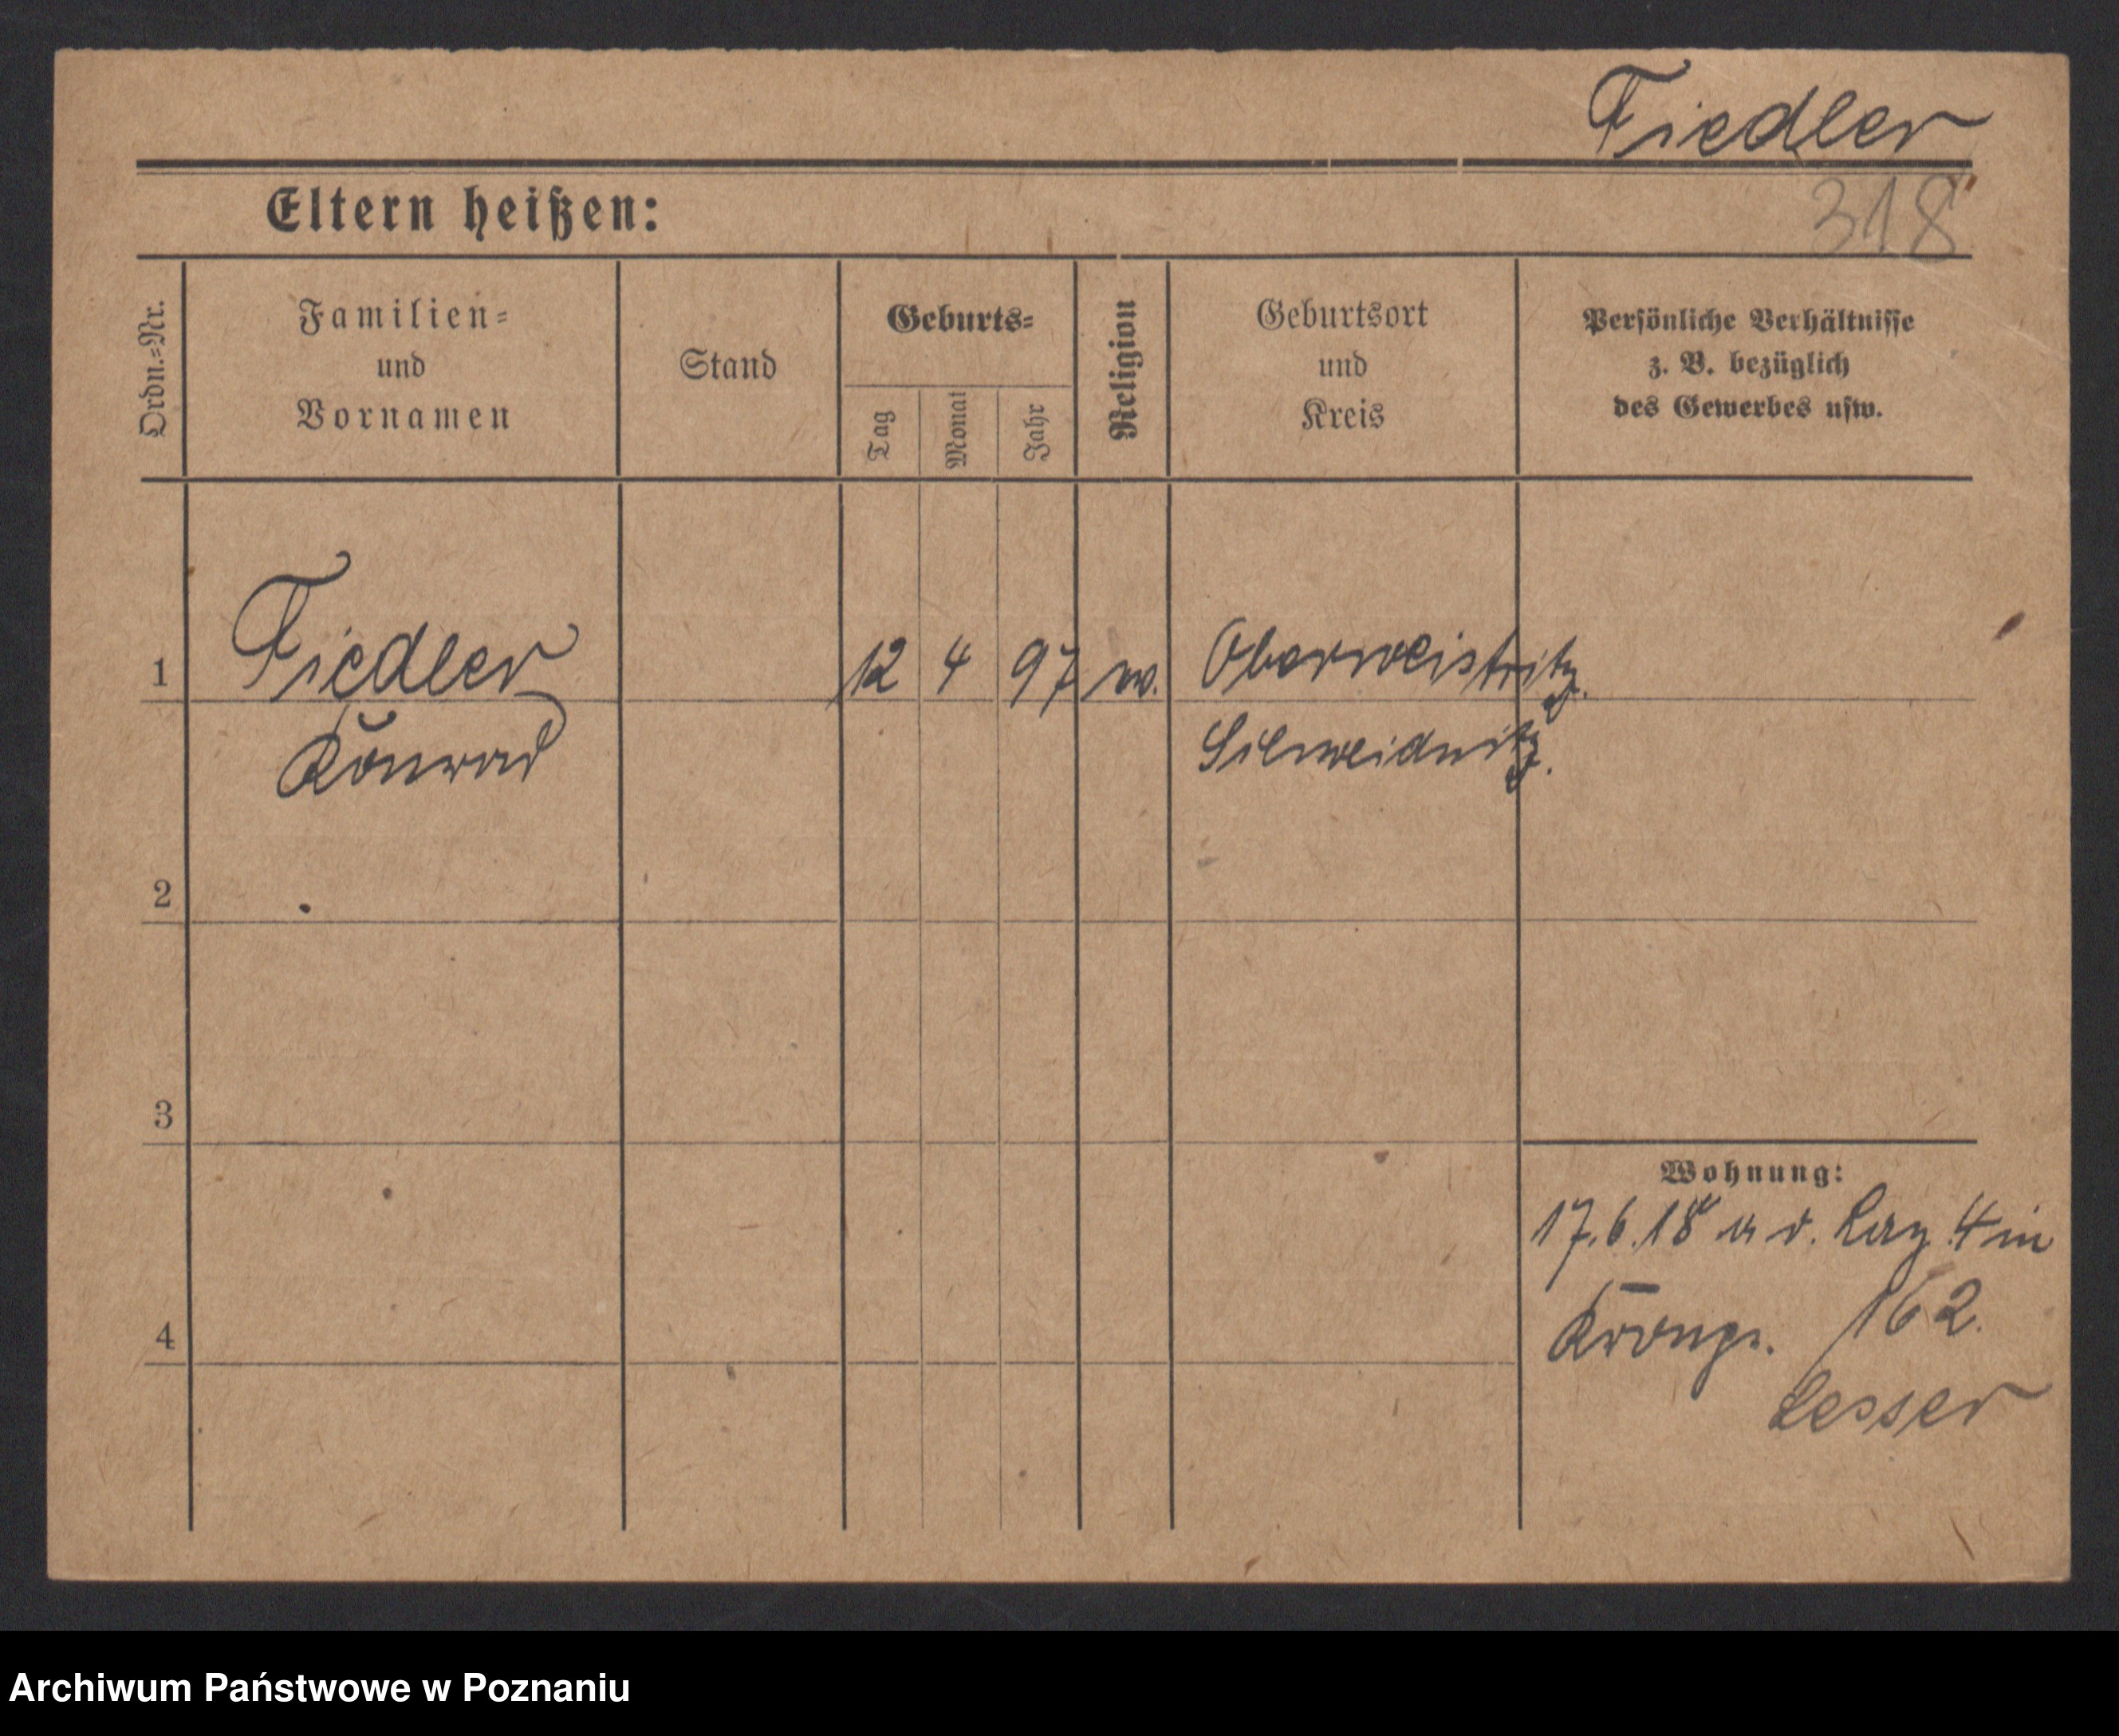 Fiedler
318
Eltern heißen:
Ordn.=Nr.
Familien=
und
Vornamen
Stand
Geburts=
Tag
Monat
Jahr
Religion
Geburtsort
und
Kreis
Persönliche Verhältnisse
z. B. bezüglich
des Gewerbes usw.
1
Fiedler
12
4
97
Oberweistritz.
Konrad
Schweidnitz.
2
3
Wohnung:
17.6.18 v. Laz 4 in
4
162.
Lesser
Archiwum Państwowe w Poznaniu